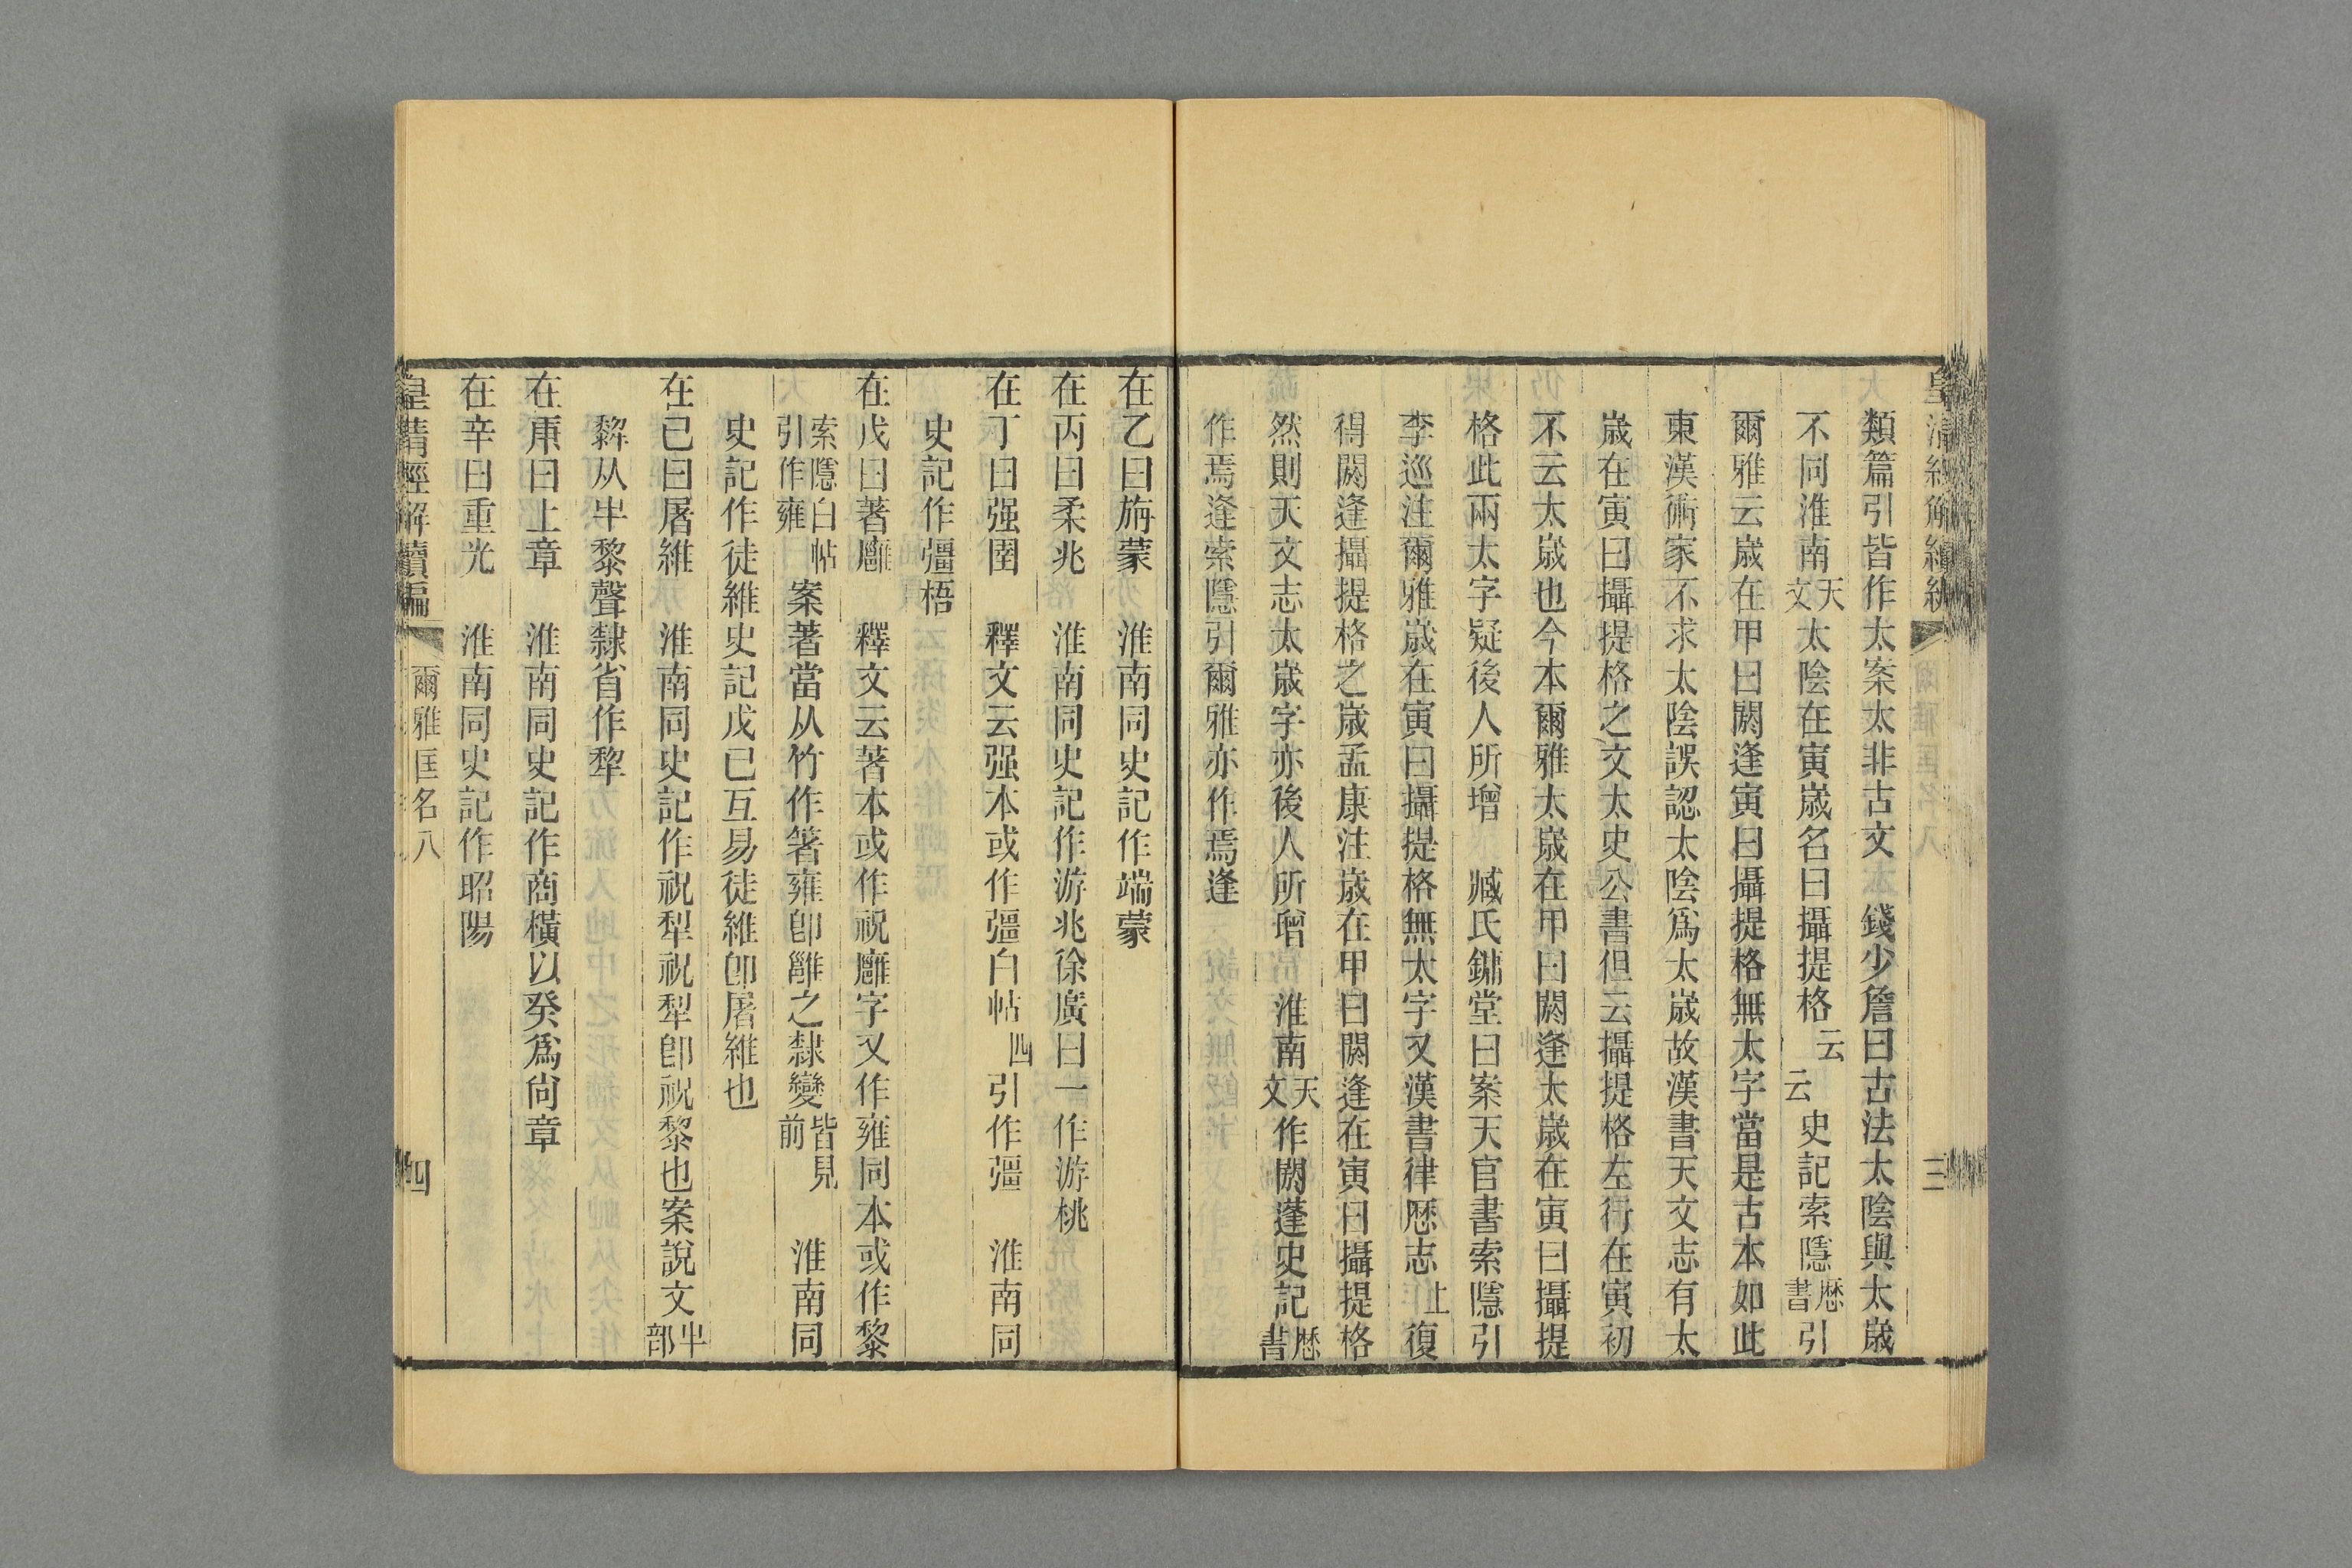 類篇引皆作太案太非古文 錢少詹曰古法太陰與太歲
不同淮南天文太陰在寅歲名曰攝提格云云史記索隱歷書引
爾雅云歲在甲曰閼逢寅曰攝提格無太字當是古本如此
東漢術家不求太陰誤認太陰爲太歲故漢書天文志有太
歲在寅曰攝提格之文太史公書但云攝提格左行在寅初
不云太歲也今本爾雅太歲在甲曰閼逢太歲在寅曰攝提
格此兩太字疑後人所增 臧氏鏞堂曰案天官書索隱引
李巡注爾雅歲在寅曰攝提格無太字又漢書律歷志上復
得閼逢攝提格之歲孟康注歲在甲曰閼逢在寅曰攝提格
然則天文志太歲字亦後人所增 淮南天文作閼蓬史記歷書
作焉逢索隱引爾雅亦作焉逢
在乙曰旃蒙 淮南同史記作端蒙
在丙曰柔兆 淮南同史記作游兆徐廣曰一作游桃
在丁曰强圉 釋文云强本或作彊白帖四引作彊 淮南同
史記作彊梧
在戊曰著雝 釋文云著本或作祝雝字又作雍同本或作黎
索隱白帖引作雍 案著當从竹作箸雍卽雝之隸變皆見前 淮南同
史記作徒維史記戊己互易徒維卽屠維也
在己曰屠維 淮南同史記作祝犁祝犁卽祝黎也案說文牛部
犂从牛黎聲隸省作犂
在庚曰上章 淮南同史記作商橫以癸爲尙章
在辛曰重光 淮南同史記作昭陽
皇清經解續編 爾雅匡名八 四